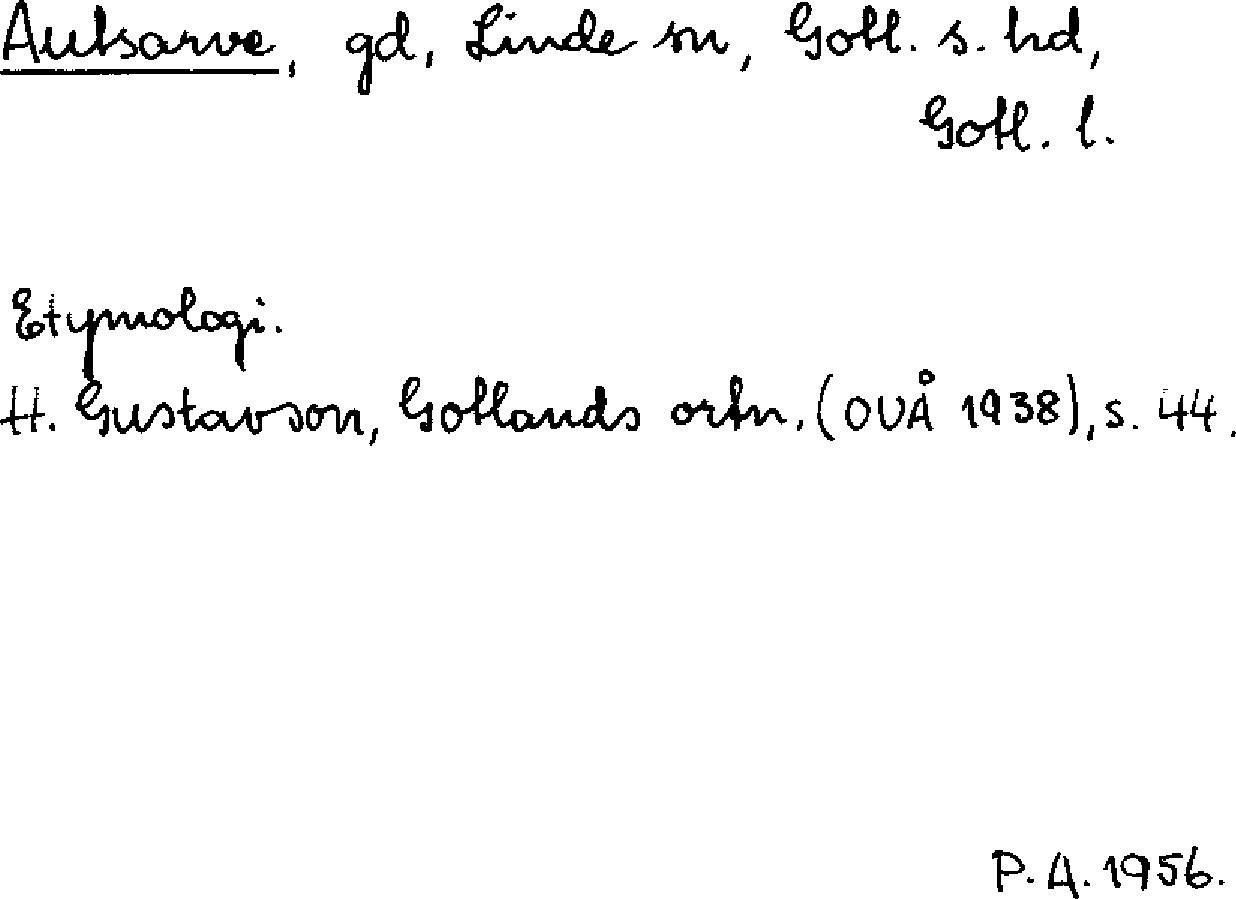 Autsarve, gd, Linde sn, Gotl. s. hd,
Gotl. l.
Etymologi.
H. Gustavson, Gotlands ortn. (OUÅ 1938), s. 44.
P. A. 1956.